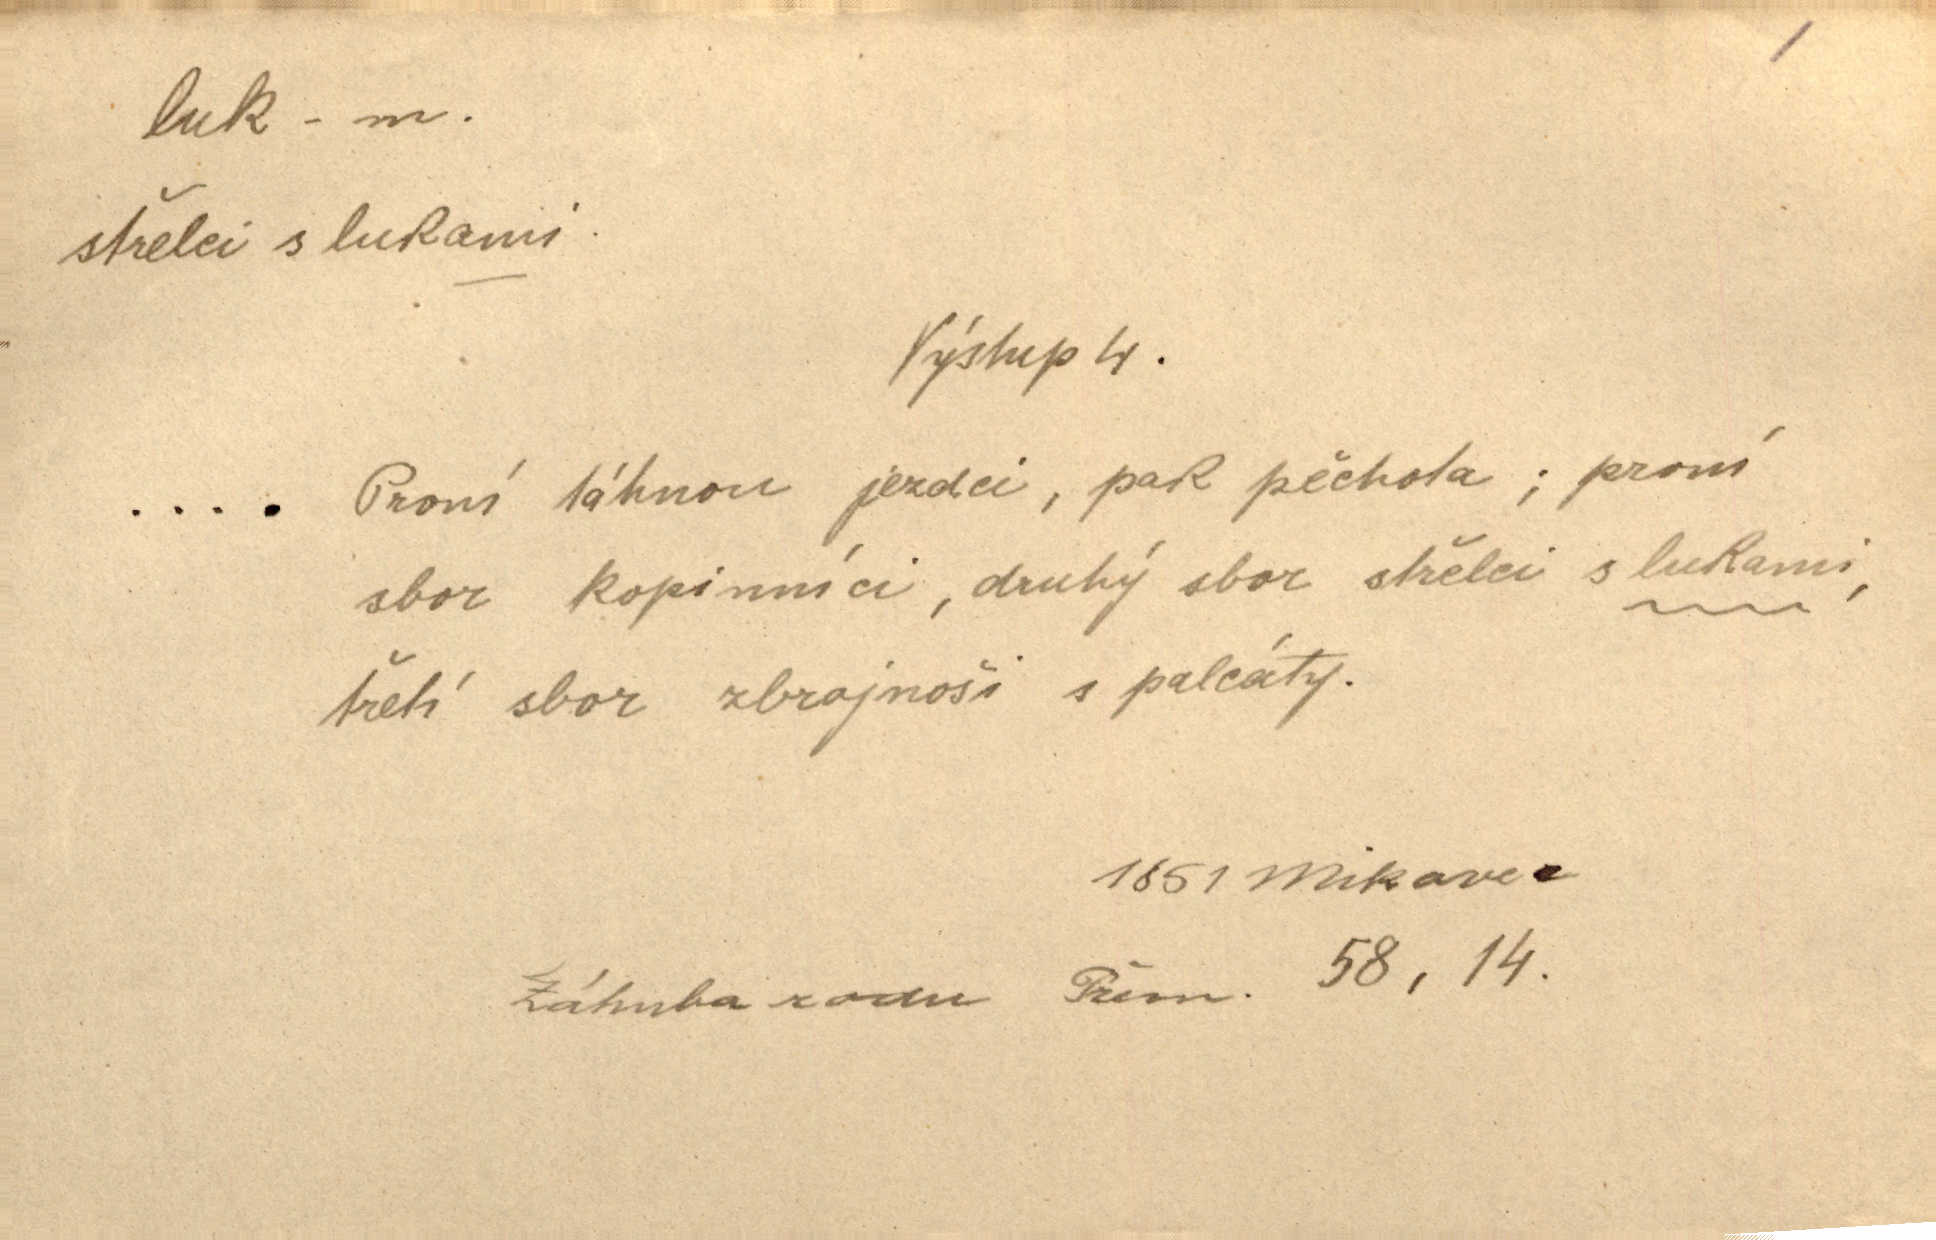 luk - m.
střelci s lukami.
Výstup 4.
.... První táhnou jezdci, pak pěchota; první
sbor kopinníci, druhý sbor střelci s lukami,
třetí sbor zbrojnoši s palcáty.
1851 Mikovec
Záhuba rodu Přem. 58, 14.